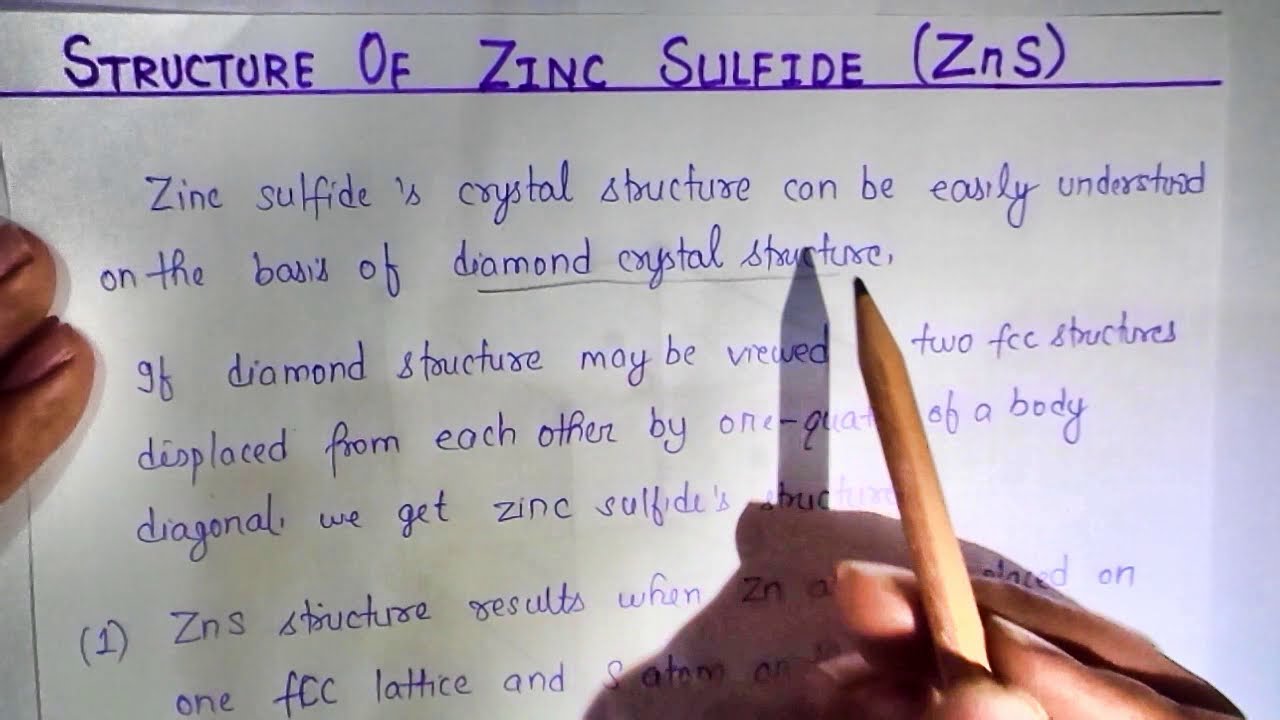 STRUCTURE OF ZINC SULFIDE (ZnS)
Zinc sulfide's crystal structure can be easily understood
on the basis of diamond crystal structure.
If diamond structure may be viewed two fcc structures
displaced from each other by one- of a body
diagonal. we get zinc sulfide's structure
(1) ZnS structure results when Zn on
one fCC lattice and S atom on